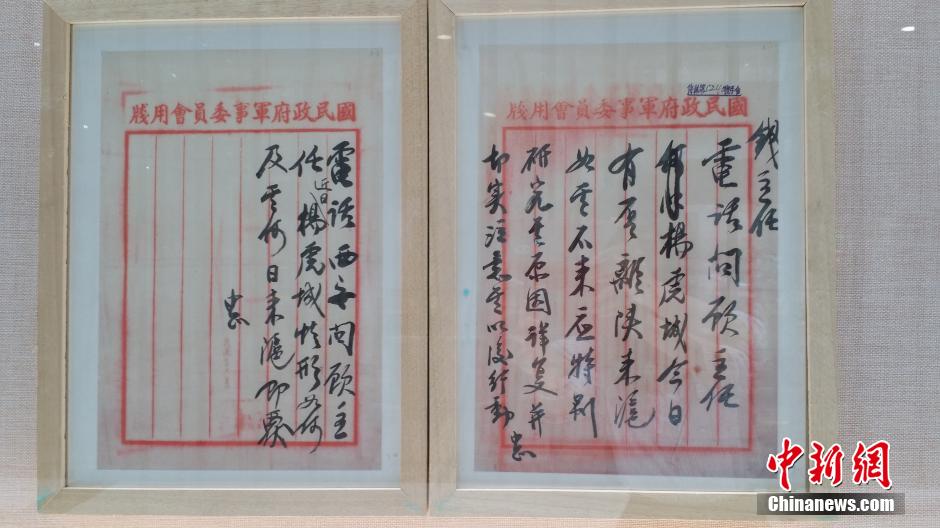 國民政府軍事委員會用牋
錢主任
電話問顧主任
楊虎城今日
有否離陝來滬
如其不來應特別
研究其原因詳復並
切實注意其以後行動
國民政府軍事委員會用牋
電話西安問顧主
任近日楊虎城情形如何
及其何日來滬即覆
中新網
Chinanews.com